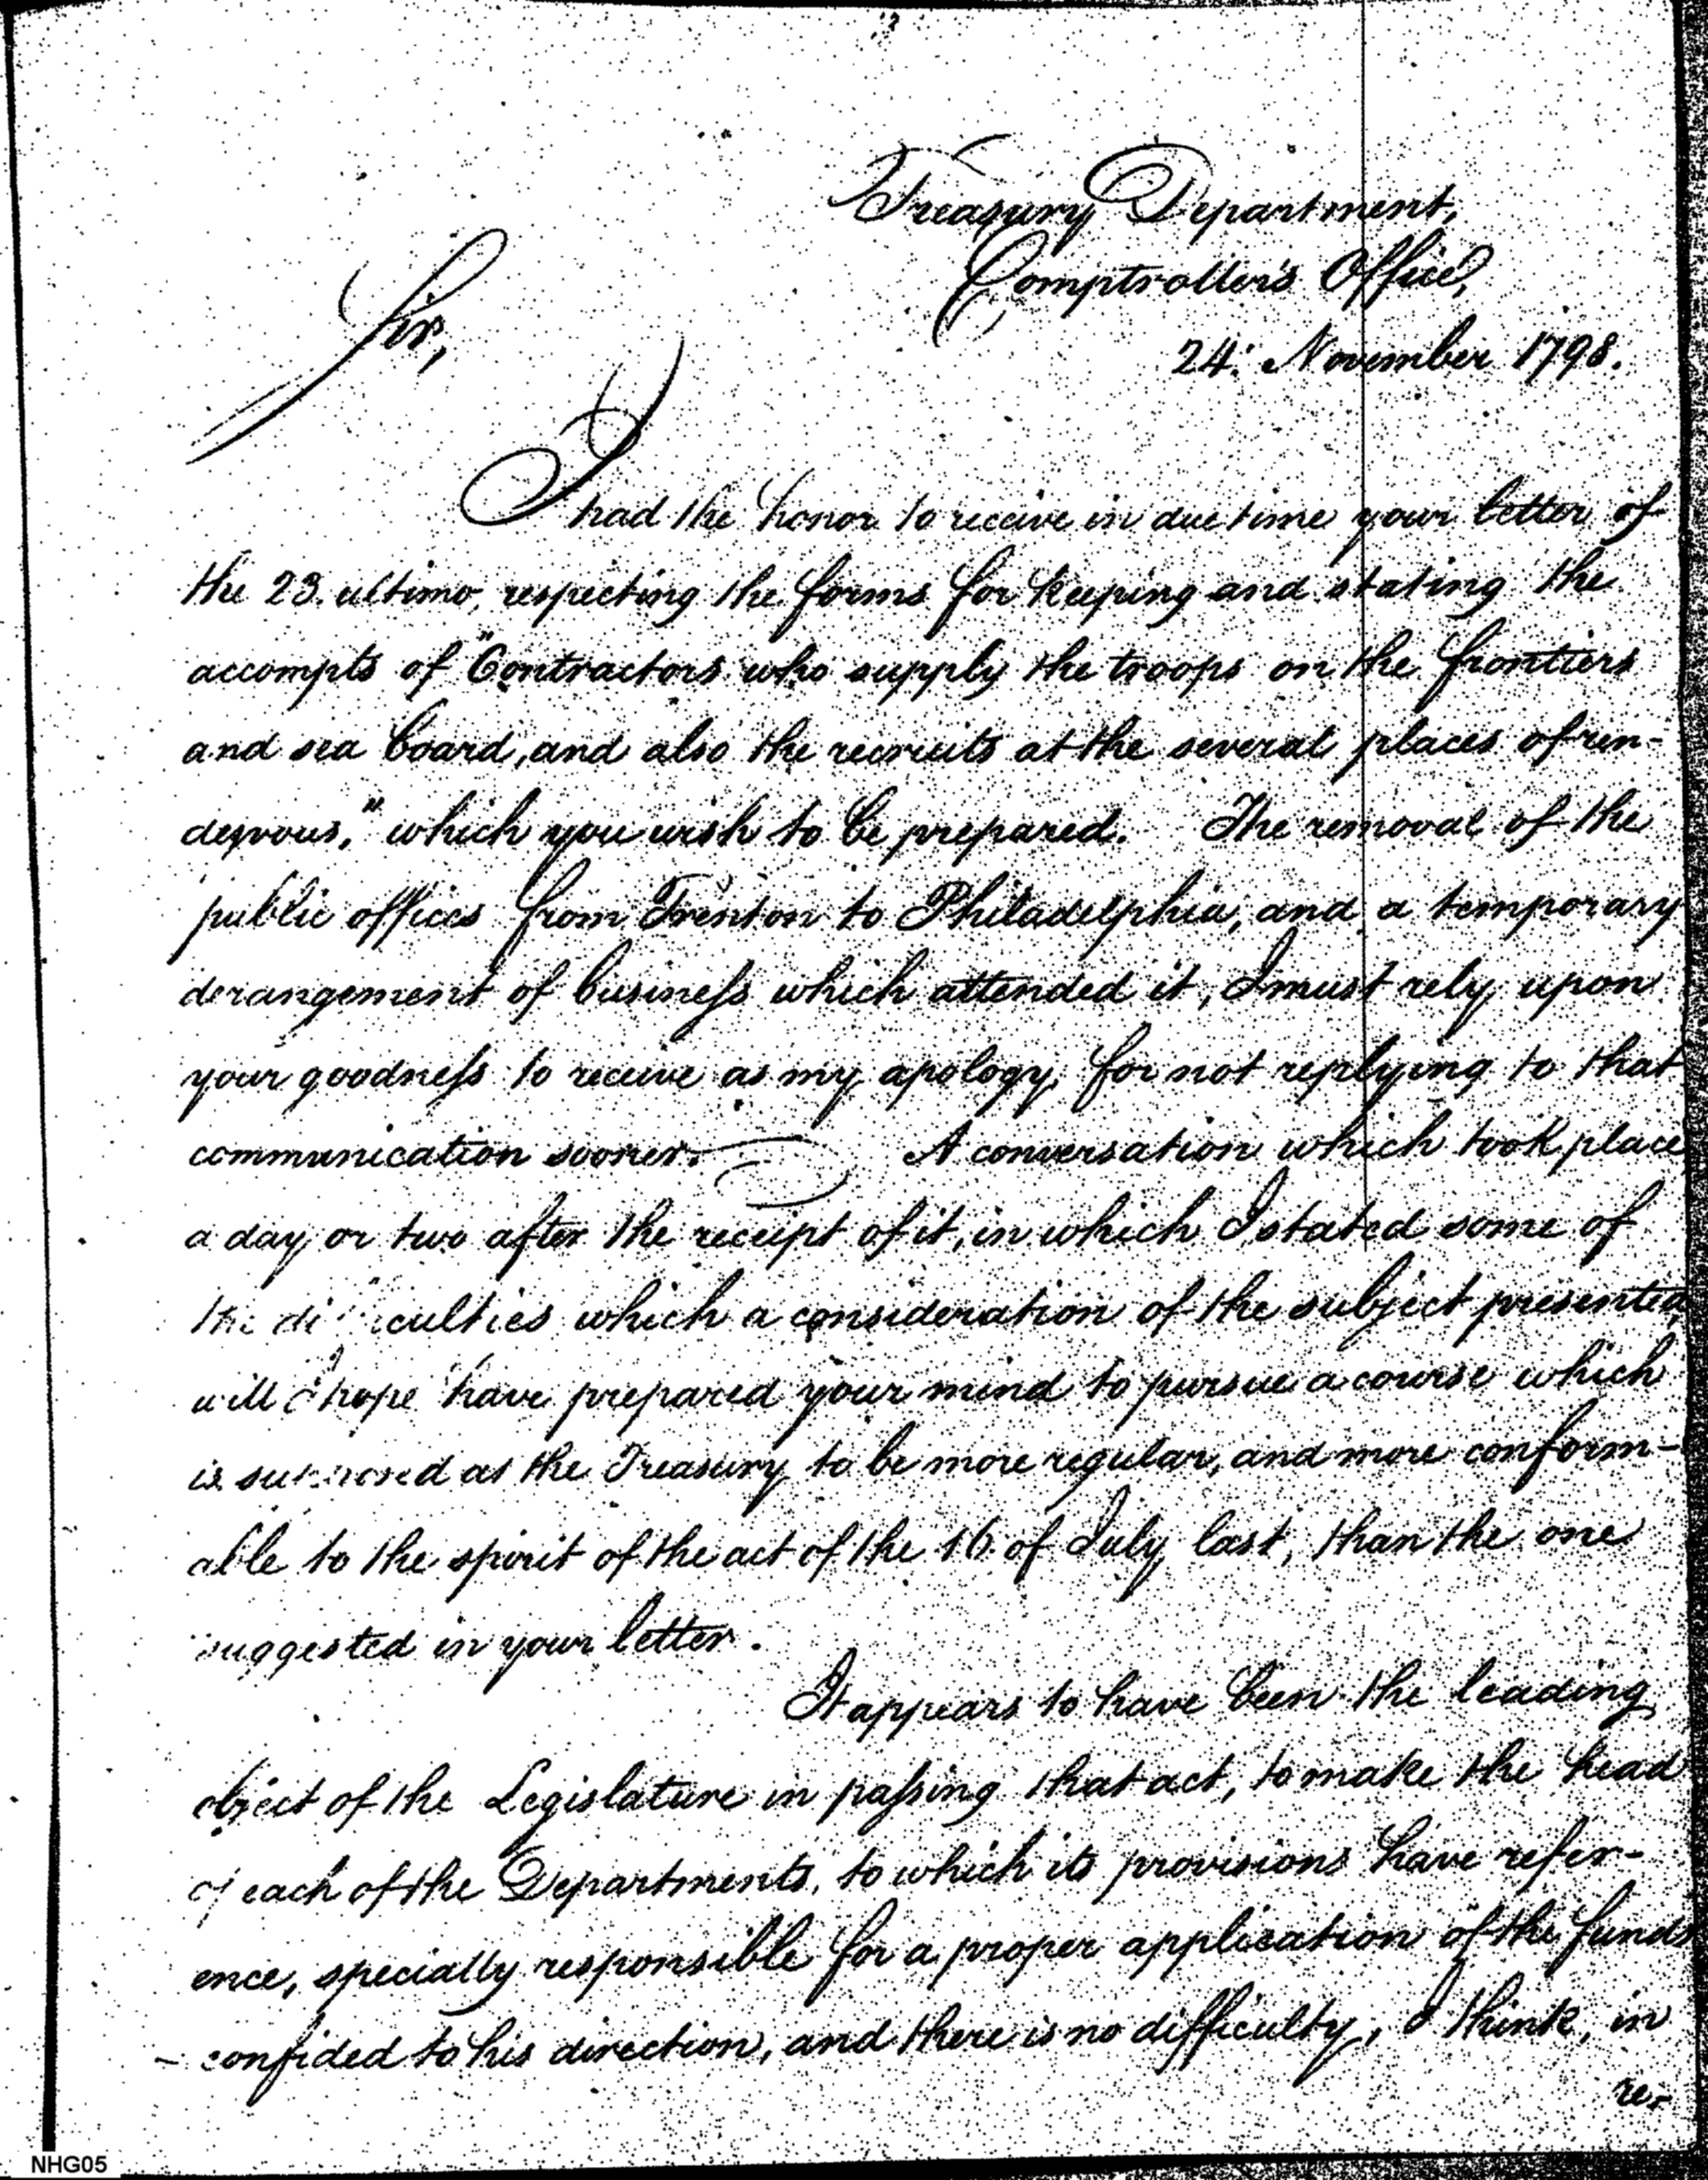 Treasury Department,
Comptroller's Office,
24: November 1798.
Sir,
I had the honor to receive in due time your letter of
the 23. ultimo, respecting the forms for keeping and stating the
accompts of "Contractors who supply the troops on the frontiers
and sea board, and also the recruits at the several places of ren-
dezvous," which you wish to be prepared. The removal of the
public offices from Trenton to Philadelphia, and a temporary
derangement of business which attended it, I must rely upon
your goodness to receive as my apology, for not replying to that
communication sooner. A conversation which took place
a day or two after the receipt of it, in which I stated some of
the difficulties which a consideration of the subject presented,
will I hope have prepared your mind to pursue a course which
is supposed at the Treasury to be more regular, and more conform-
able to the spirit of the act of the 16 of July last, than the one
suggested in your letter.
It appears to have been the leading
object of the Legislature in passing that act, to make the head
of each of the Departments, to which its provisions have refer-
ence, specially responsible for a proper application of the funds
confided to his direction, and there is no difficulty, I think, in
re-
NHG05